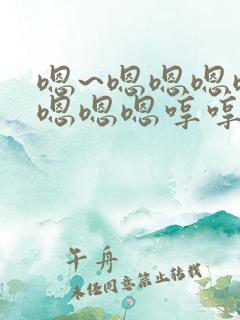 嗯~嗯嗯嗯
嗯嗯嗯哼哼
午舟
未经同意禁止转载